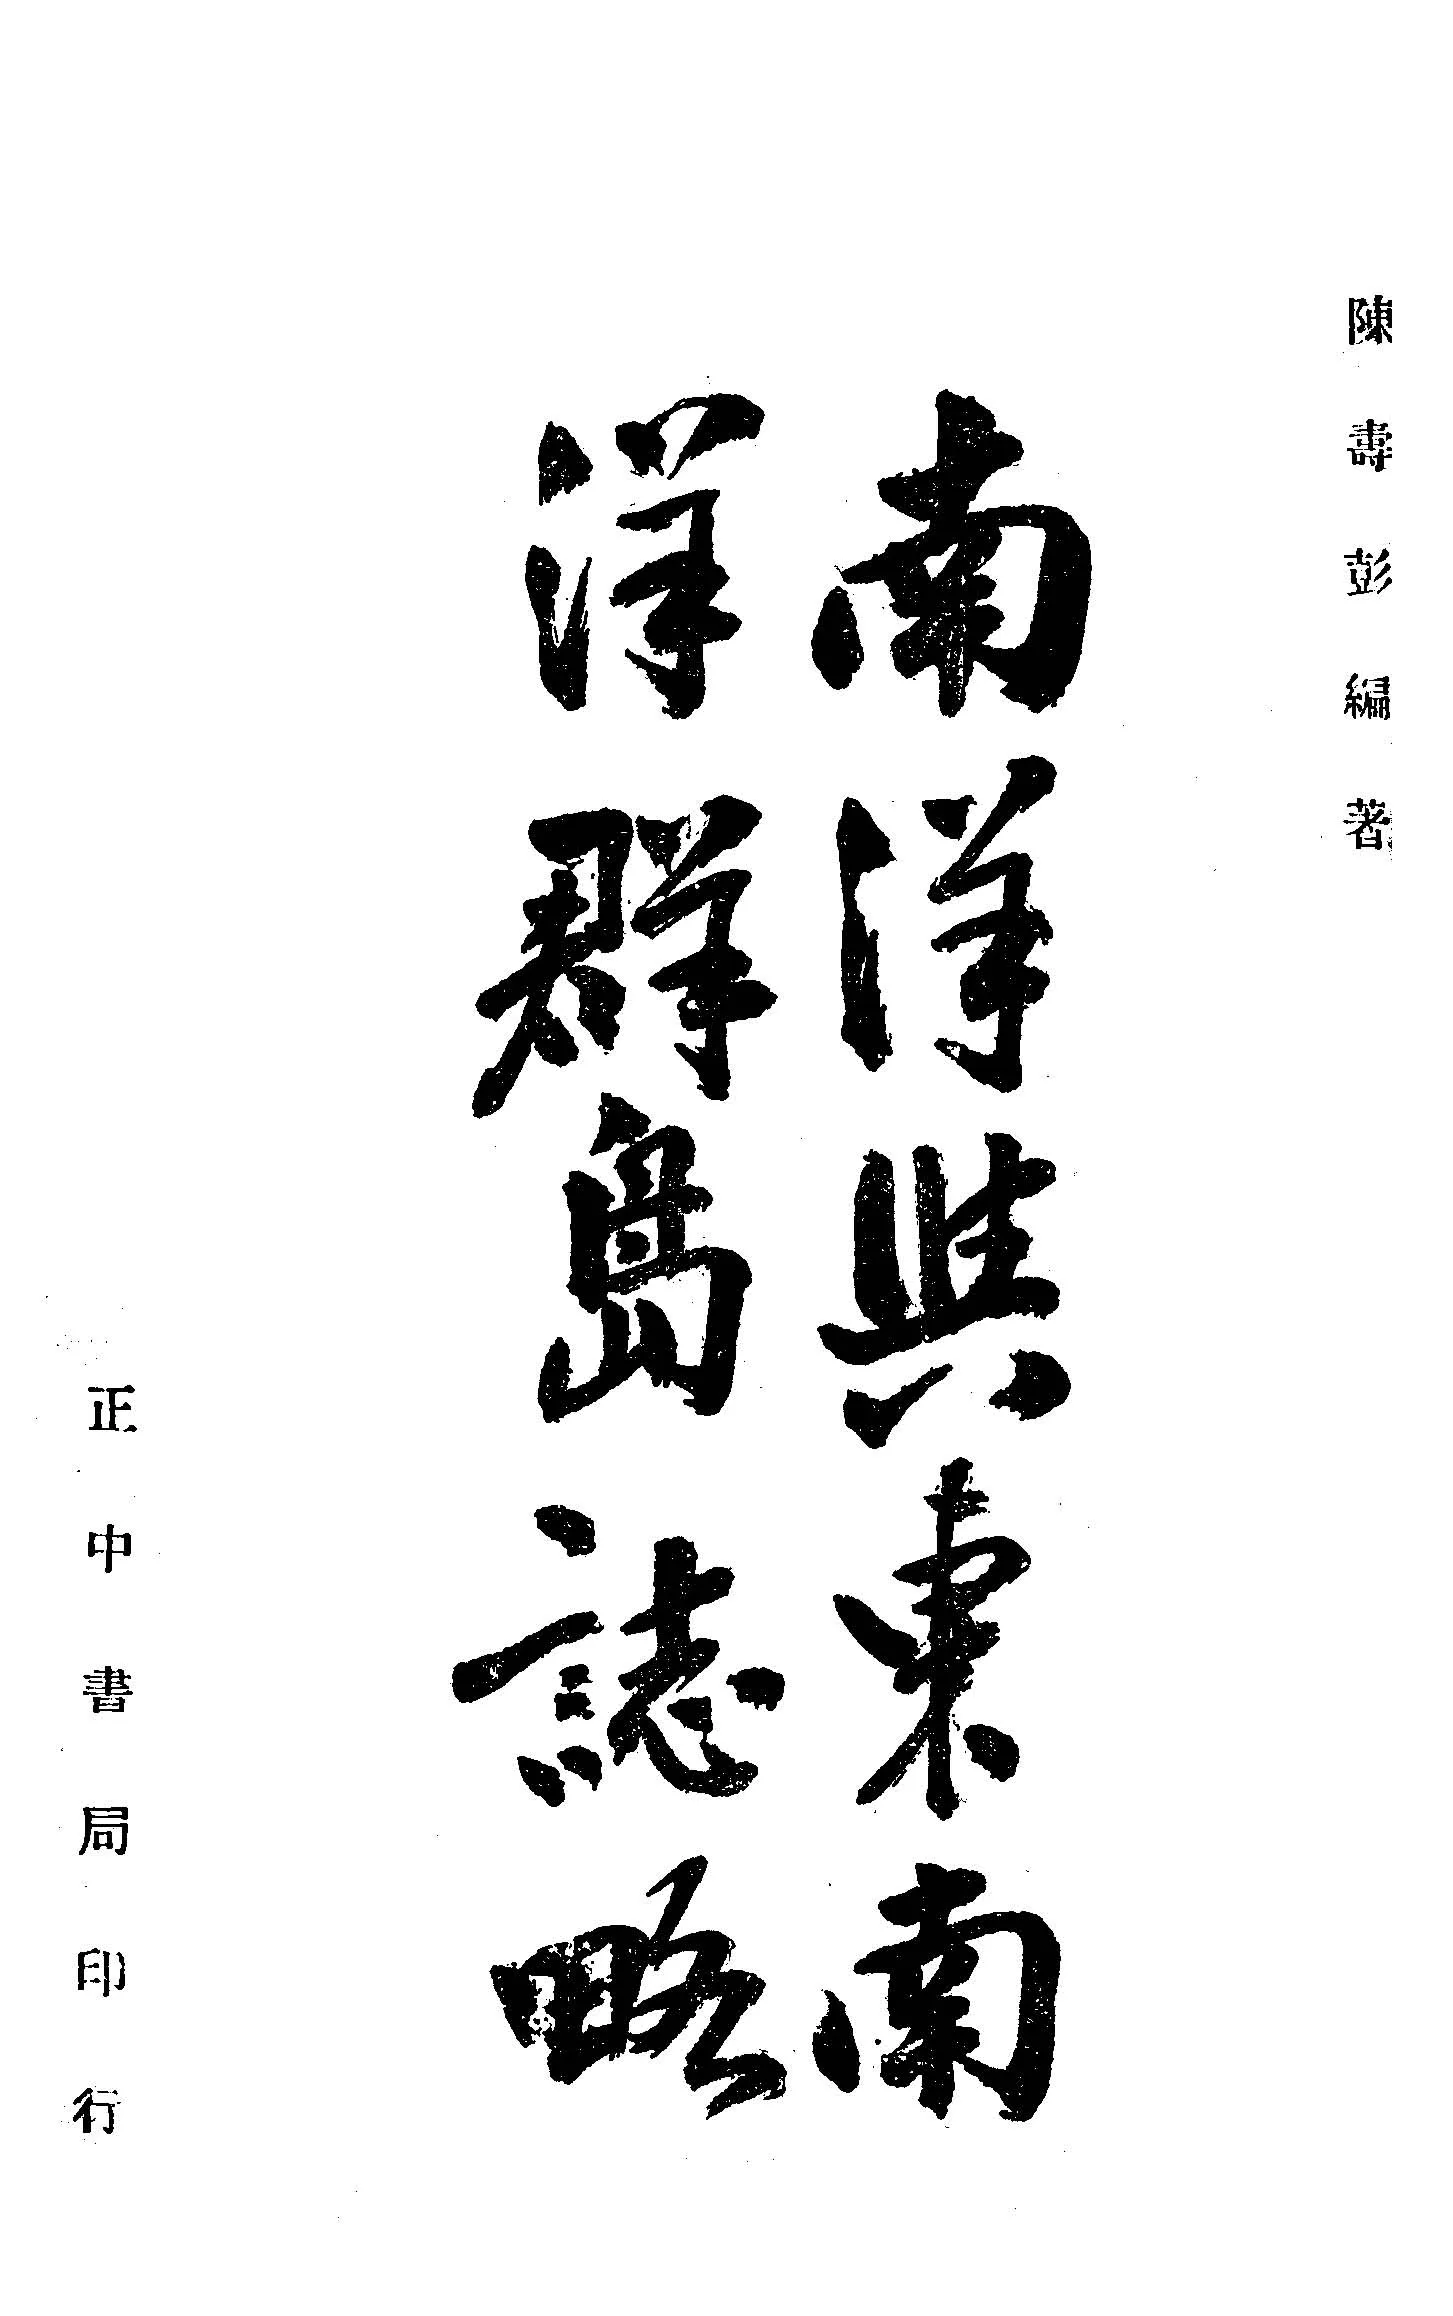 陳壽彭編著
南洋與東南
洋羣島誌略
正中書局印行